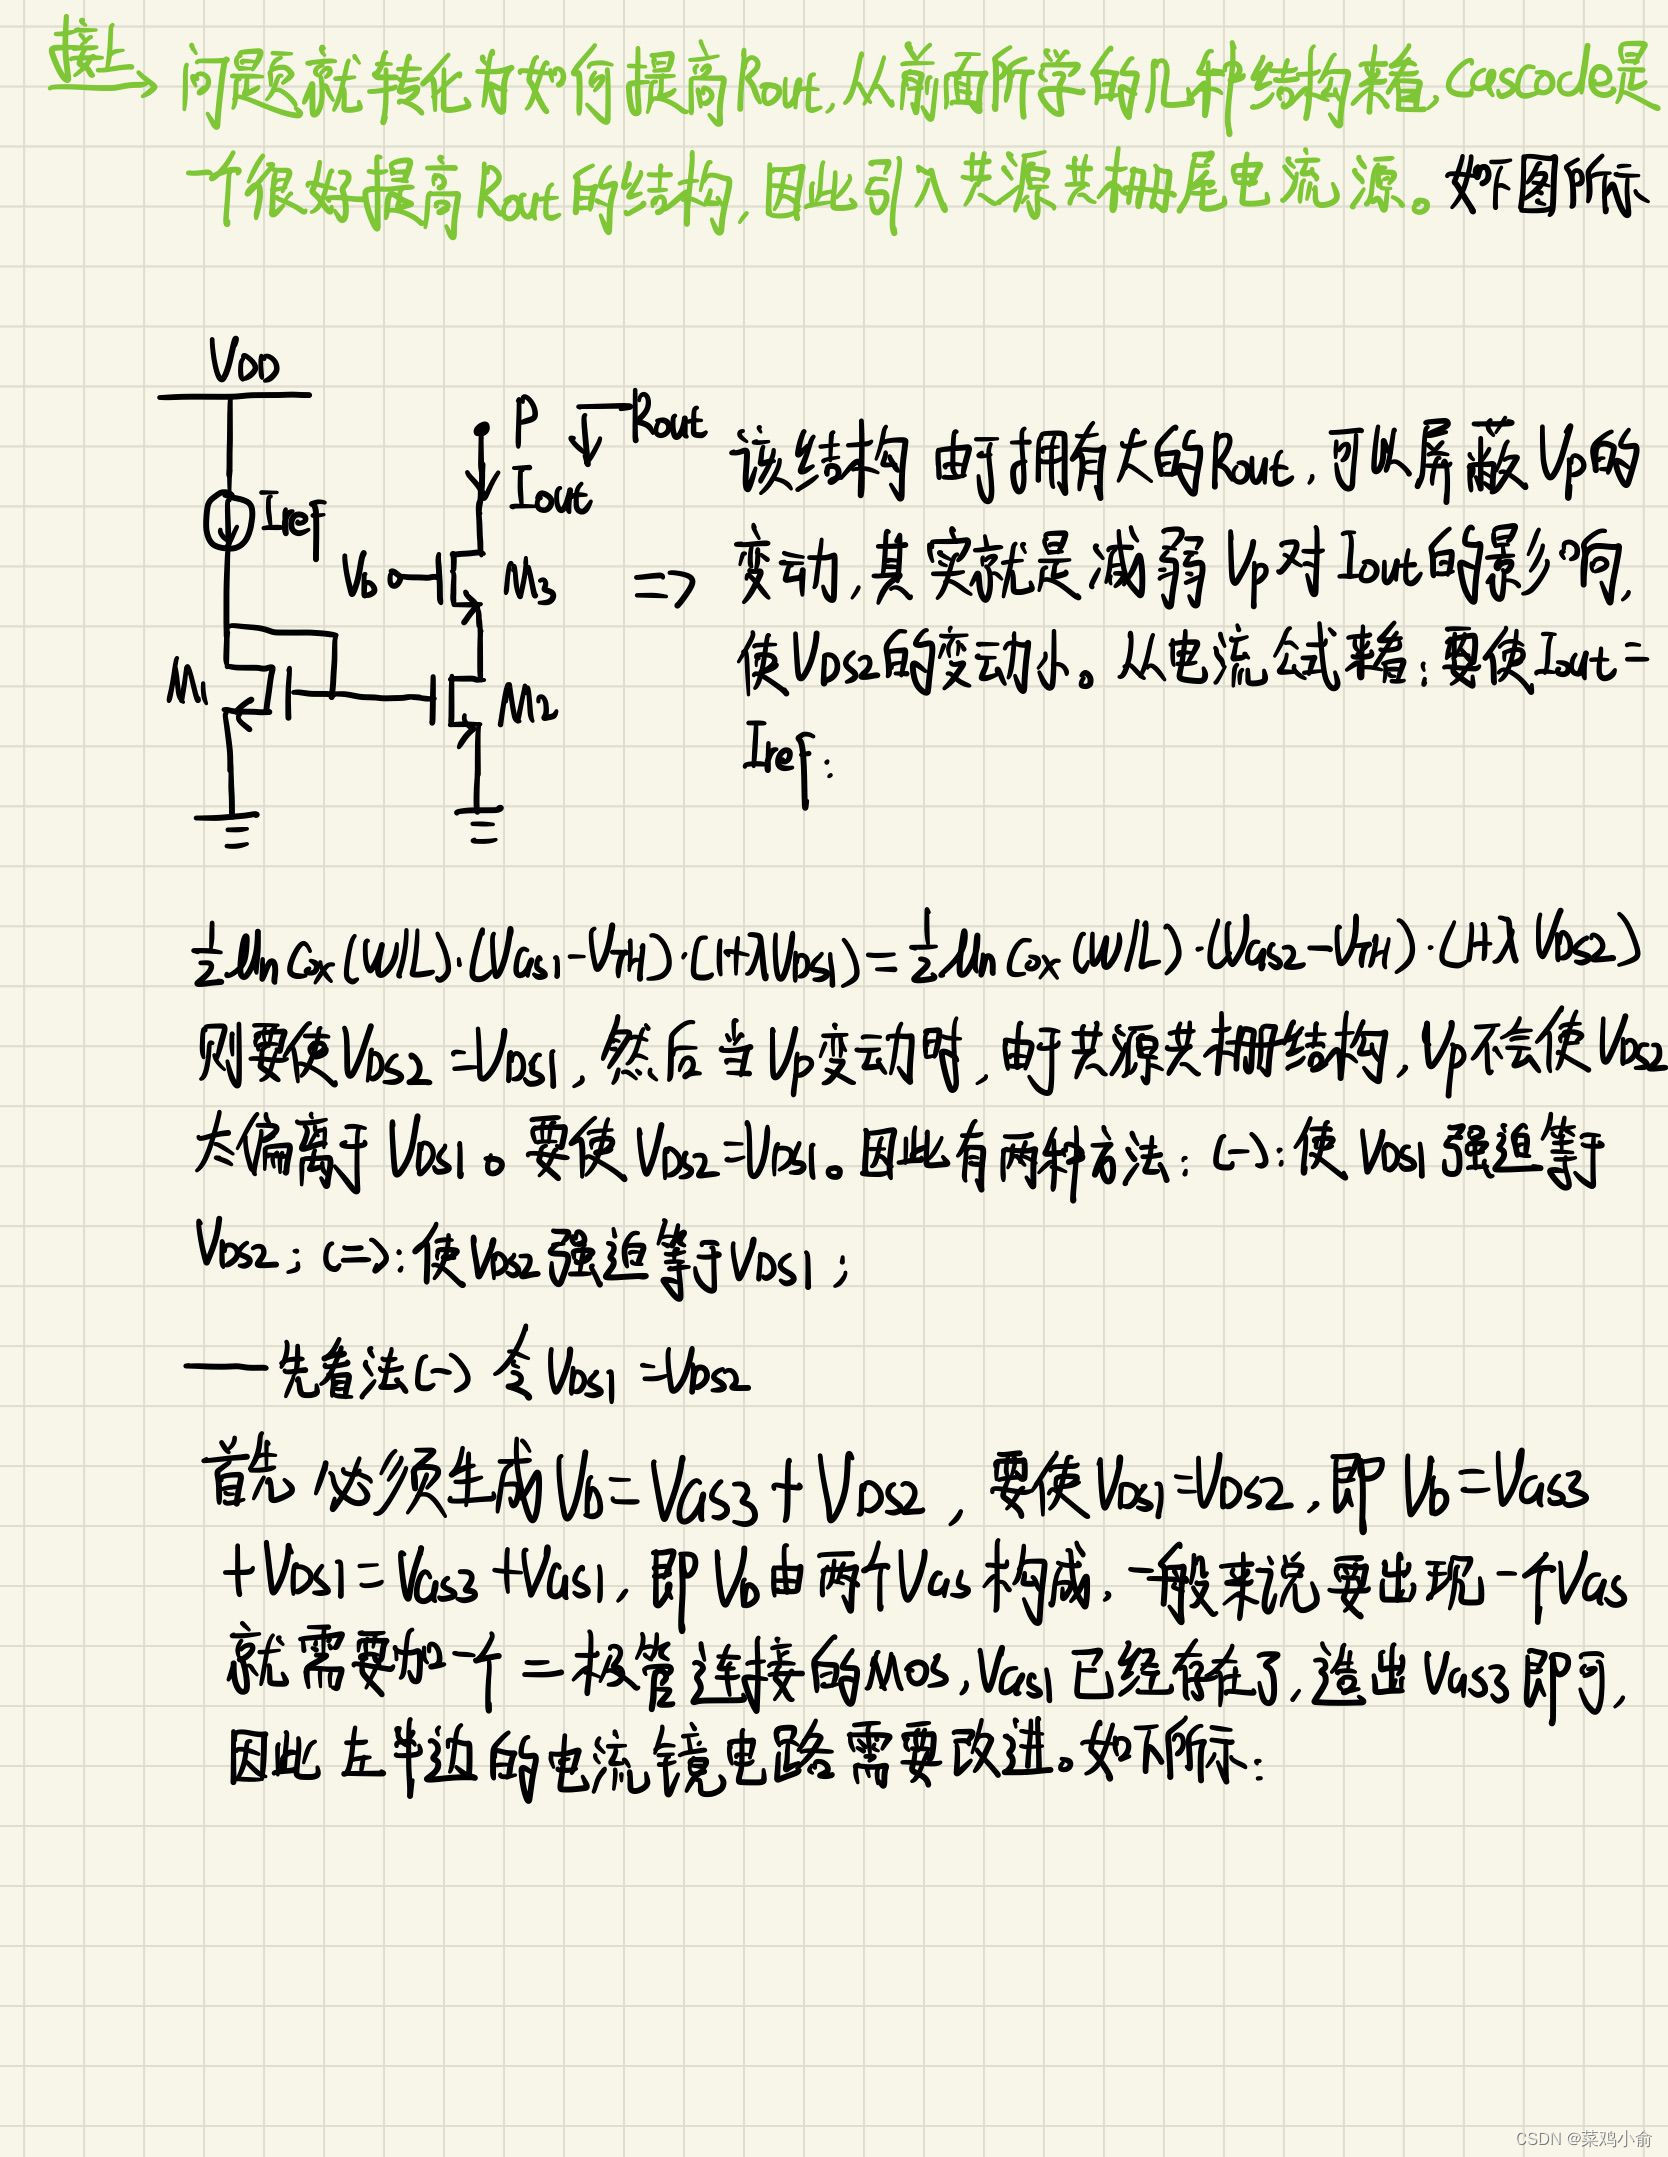 接上→ 问题就转化为如何提高Rout,从前面所学的几种结构来看,Cascode是
一个很好提高Rout的结构,因此引入共源共栅尾电流源。如下图所示
VDD
P
Rout
Iout
Iref
Vb
M3
M1
M2
⇒
该结构由于拥有大的Rout,可以屏蔽Vp的
变动,其实就是减弱Vp对Iout的影响,
使VDS2的变动小。从电流公式来看:要使Iout=
Iref:
1/2 μnCox(W/L)·(VGS1-VTH)·(1+λVDS1)=1/2 μnCox(W/L)·(VGS2-VTH)·(1+λVDS2)
则要使VDS2=VDS1,然后当Vp变动时,由于共源共栅结构,Vp不会使VDS2
太偏离于VDS1。要使VDS2=VDS1。因此有两种方法:(一):使VDS1强迫等于
VDS2;(二):使VDS2强迫等于VDS1;
——先看法(一)令VDS1=VDS2
首先必须生成Vb=VGS3+VDS2,要使VDS1=VDS2,即Vb=VGS3
+VDS1=VGS3+VGS1,即Vb由两个VGS构成,一般来说要出现一个VGS
就需要加一个二极管连接的MOS,VGS1已经存在了,造出VGS3即可,
因此左半边的电流镜电路需要改进。如下所示:
CSDN @菜鸡小俞